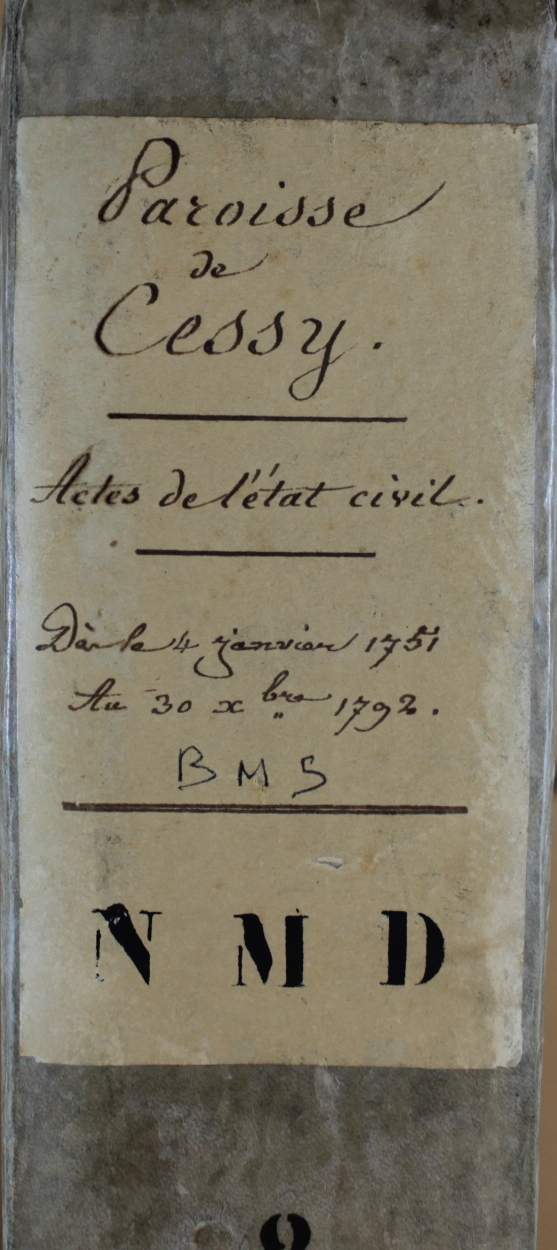 Paroisse
de
Cessy.
Actes de l'état civil.
Dès le 4 janvier 1751
Au 30 xbre 1792.
BMS
N M D